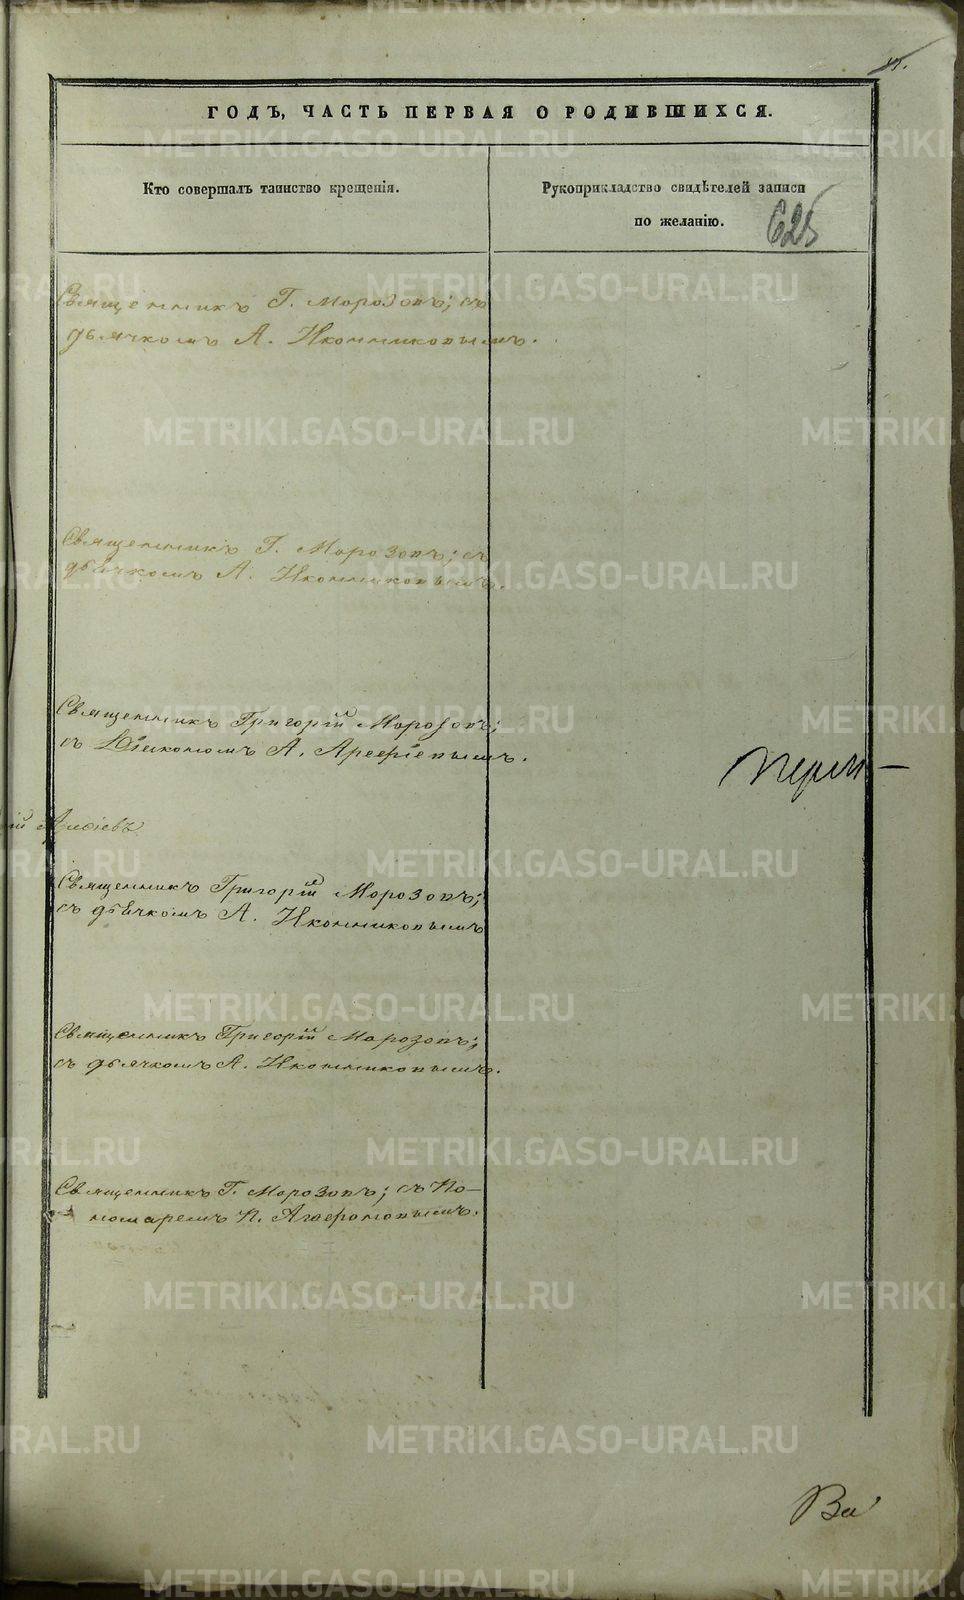 45.
ГОДЪ, ЧАСТЬ ПЕРВАЯ О РОДИВШИХСЯ.
Кто совершалъ таинство крещенія.
Рукоприкладство свидѣтелей записи
по желанію.
625
Священникъ Г. Морозовъ; съ
дьячкомъ А. Иконниковымъ.
Священникъ Г. Морозовъ; съ
дьячкомъ А. Иконниковымъ.
Священникъ Григорій Морозовъ;
съ Діакономъ А. Арефіевымъ.
Священникъ Григорій Морозовъ;
съ дьячкомъ А. Иконниковымъ
Священникъ Григорій Морозовъ;
съ дьячкомъ А. Иконниковымъ.
Священникъ Г. Морозовъ; съ По-
номаремъ П. Агафоновымъ.
METRIKI.GASO-URAL.RU